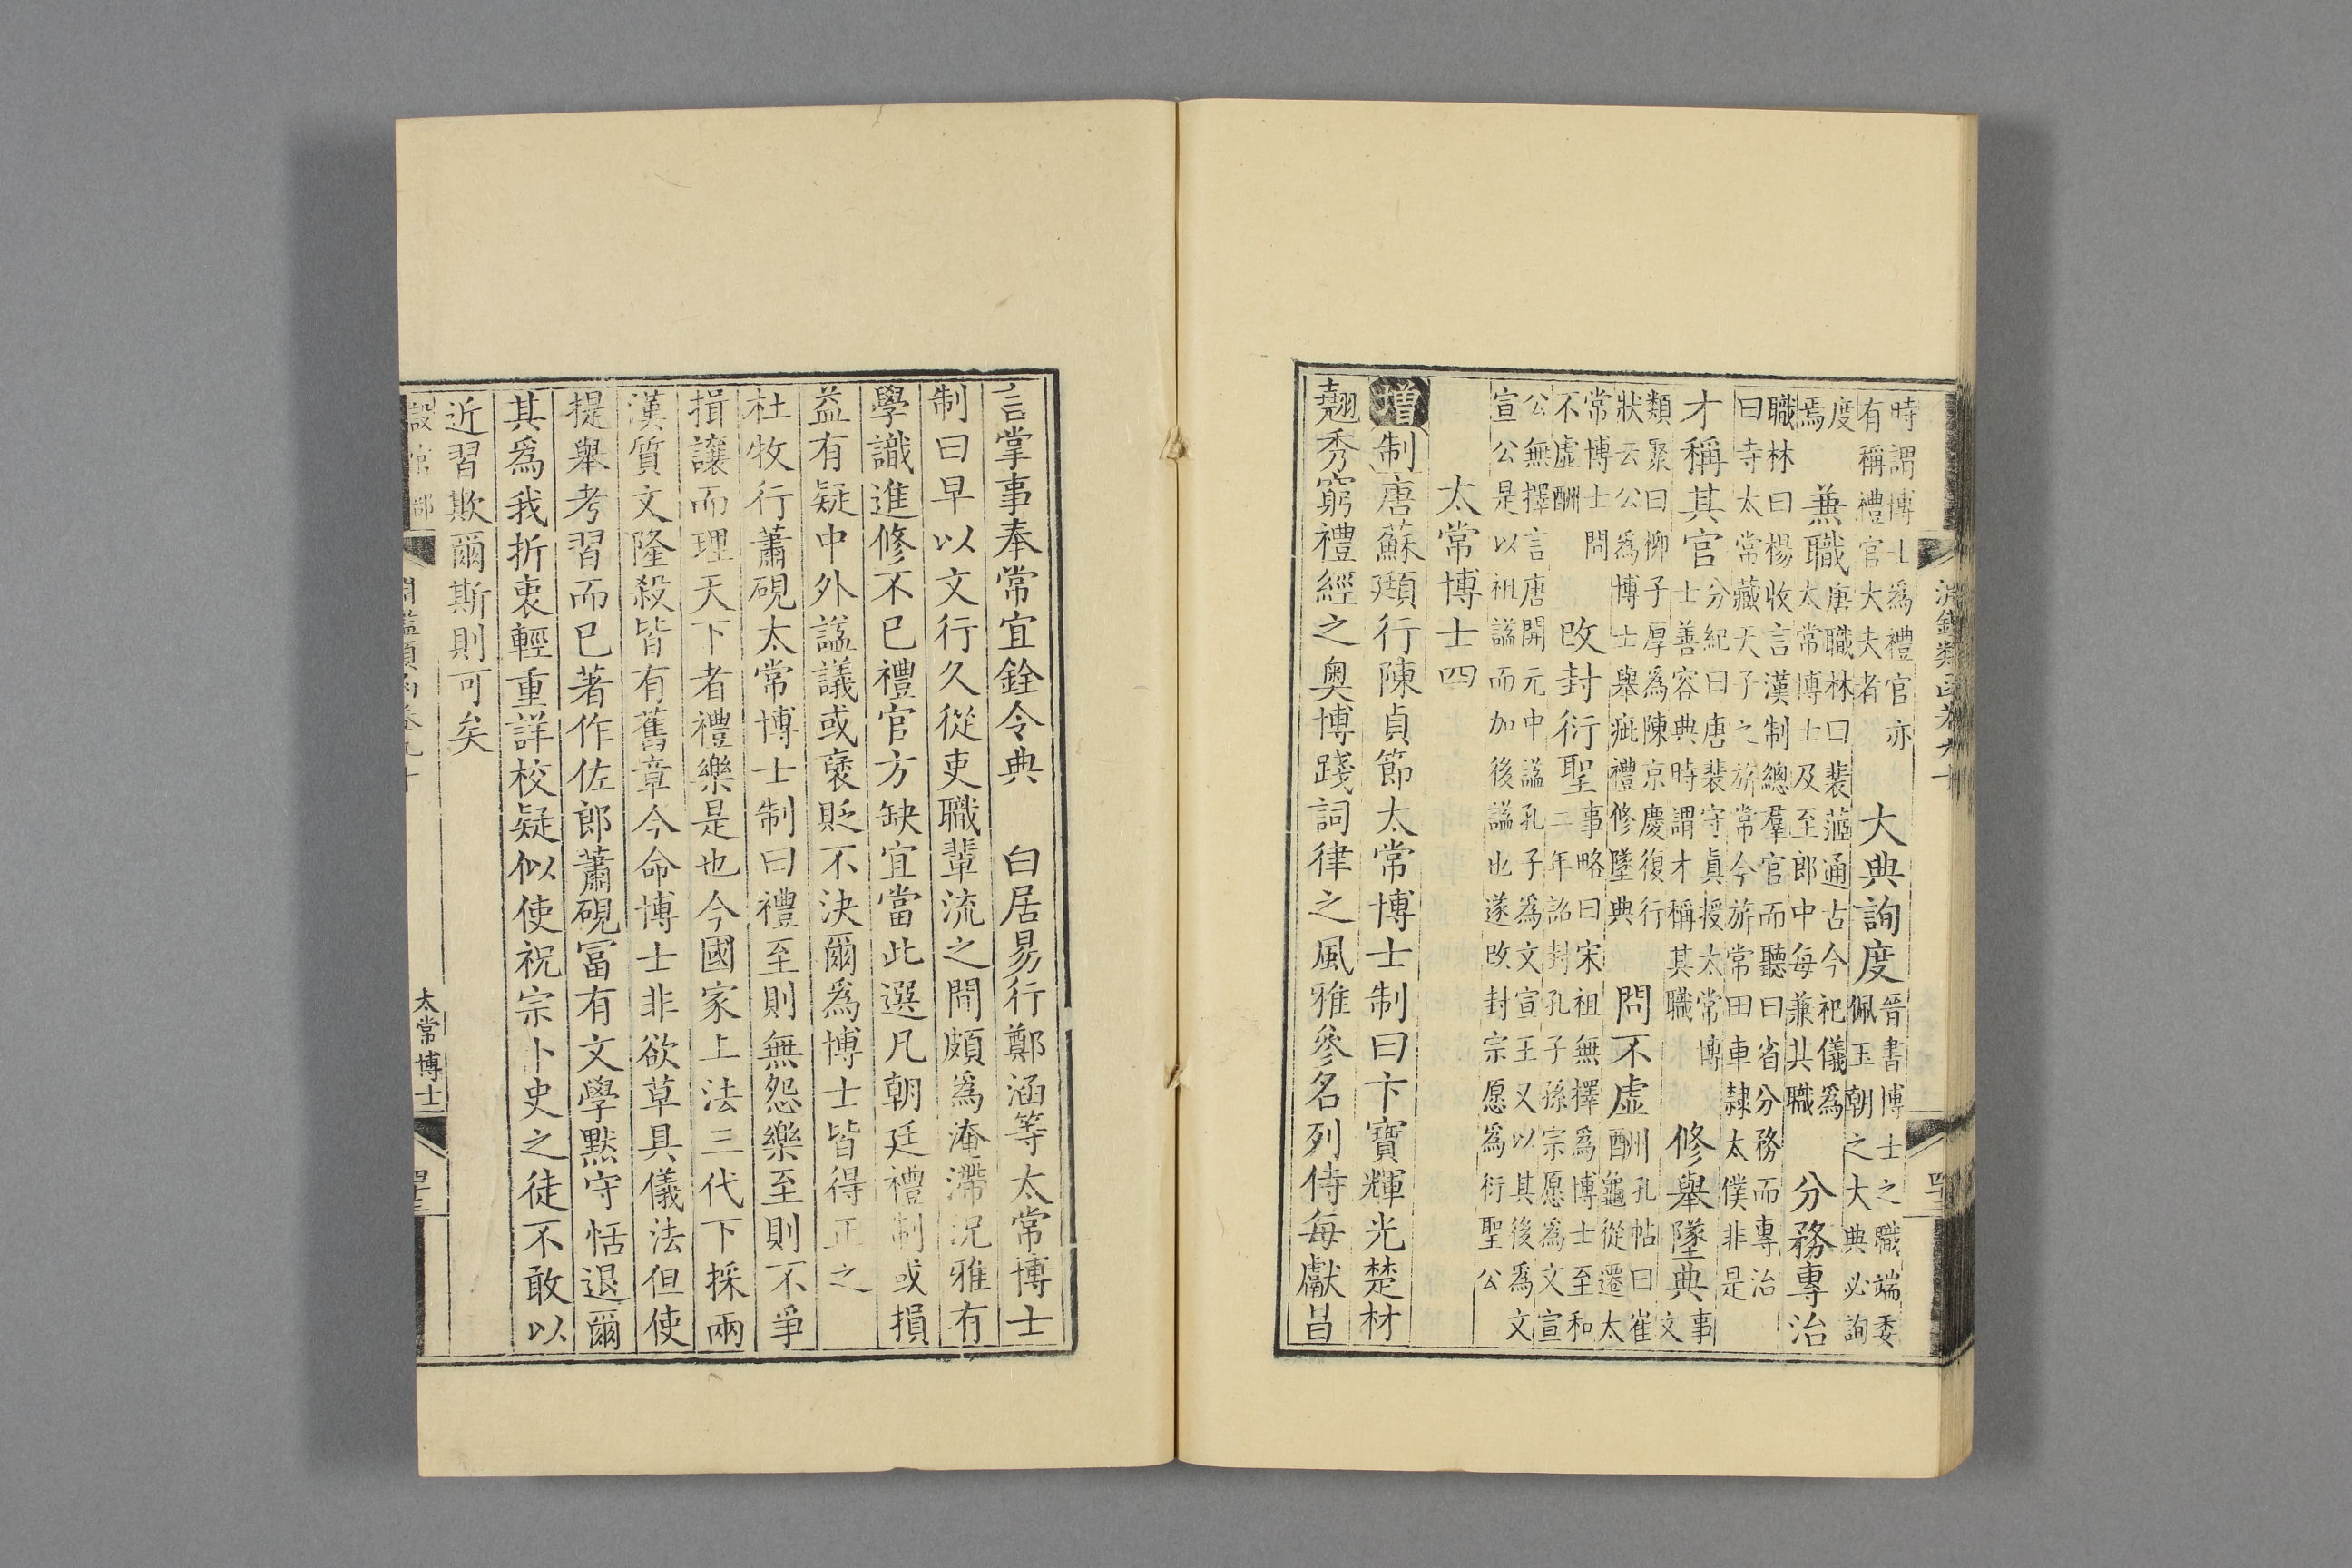 淵鑑類函卷九十
時謂博士爲禮官亦有稱禮官大夫者 大典詢度 晉書博士之職端委佩玉朝之大典必詢
度焉 兼職 唐職林曰裴滋通古今祀儀爲太常博士及至郎中每兼其職 分務專治
職林曰楊收言漢制總羣官而聽曰省分務而專治曰寺太常藏天子之旂常今旂常田車隸太僕非是
才稱其官 分紀曰唐裴守眞授太常博士善容典時謂才稱其職 修舉墜典 事文
類聚曰柳子厚爲陳京慶復行狀云公爲博士舉疵禮修墜典 問不虛酬 孔帖曰崔龜從遷太
常博士問不虛酬 改封衍聖 事略曰宋祖無擇爲博士至和二年詔封孔子孫宗愿爲文宣
公無擇言唐開元中謚孔子爲文宣王又以其後爲文宣公是以祖謚而加後謚也遂改封宗愿爲衍聖公
太常博士四
增制唐蘇頲行陳貞節太常博士制曰卞寶輝光楚材
翹秀窮禮經之奧博踐詞律之風雅參名列侍每獻昌
言掌事奉常宜銓令典 白居易行鄭涵等太常博士
制曰早以文行久從吏職輩流之間頗爲淹滯況雅有
學識進修不已禮官方缺宜當此選凡朝廷禮制或損
益有疑中外謚議或褒貶不決爾爲博士皆得正之
杜牧行蕭硯太常博士制曰禮至則無怨樂至則不爭
揖讓而理天下者禮樂是也今國家上法三代下採兩
漢質文隆殺皆有舊章今命博士非欲草具儀法但使
提舉考習而已著作佐郎蕭硯冨有文學黙守恬退爾
其爲我折衷輕重詳校疑似使祝宗卜史之徒不敢以
近習欺爾斯則可矣
設官部 淵鑑類函卷九十 太常博士